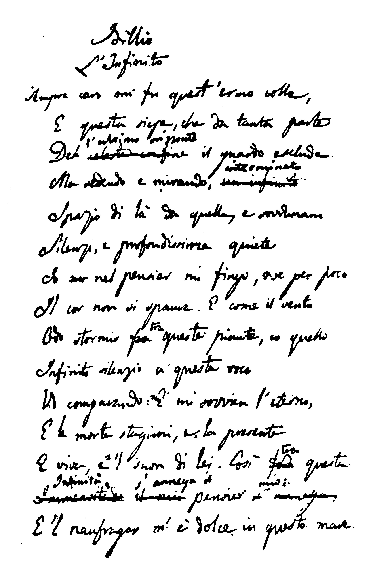 Idillio
L'Infinito
Sempre caro mi fu quest'ermo colle,
E questa siepe, che da tanta parte
l'ultimo orizzonte
Del celeste confine il guardo esclude.
interminato
Ma sedendo e mirando, un infinito
Spazio di là da quella, e sovrumani
Silenzi, e profondissima quiete
Io nel pensier mi fingo, ove per poco
Il cor non si spaura. E come il vento
Odo stormir tra queste piante, io quello
Infinito silenzio a questa voce
Vo comparando: E mi sovvien l'eterno,
E le morte stagioni, e la presente
E viva, e 'l suon di lei. Così tra questa
Infinità s'annega il mio:
pensier s'annega,
E 'l naufragar m'è dolce in questo mare.